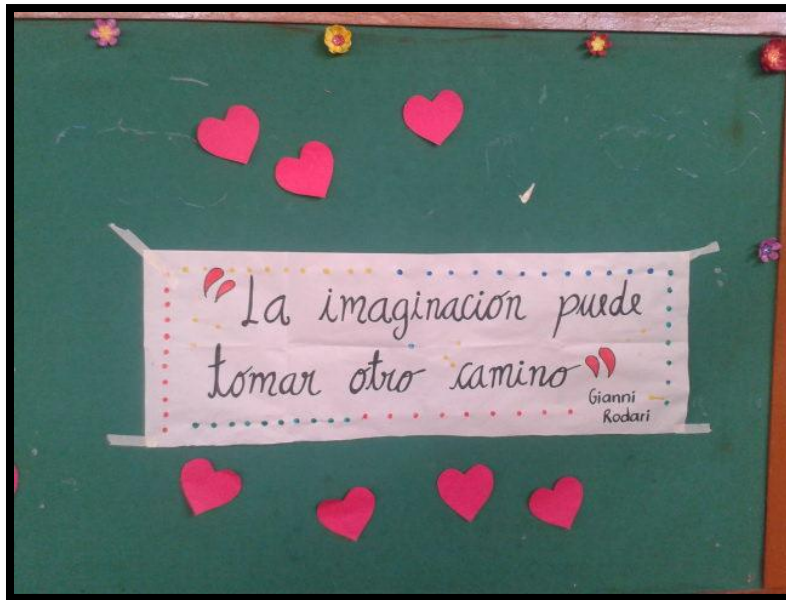 "La imaginación puede
tomar otro camino"
Gianni
Rodari